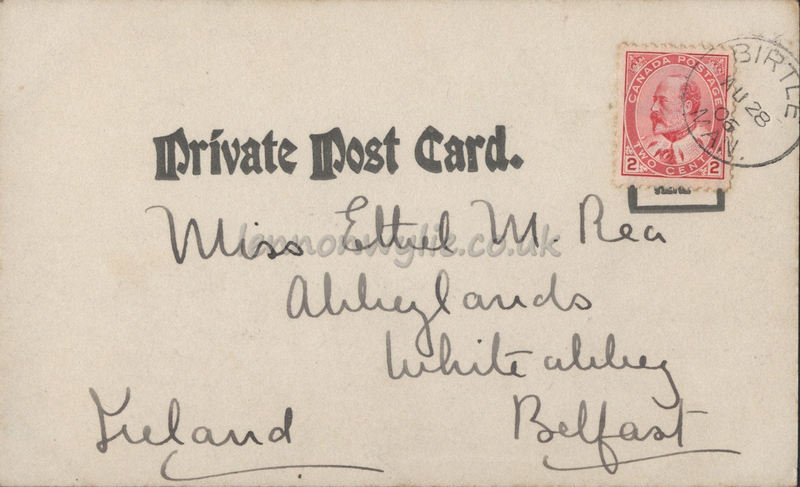 BIRTLE
AU 28
05
MAN.
CANADA POSTAGE
2 TWO CENTS 2
Private Post Card.
Miss Ethel M. Rea
lennonwylie.co.uk
Abbeylands
Whiteabbey
Ireland Belfast